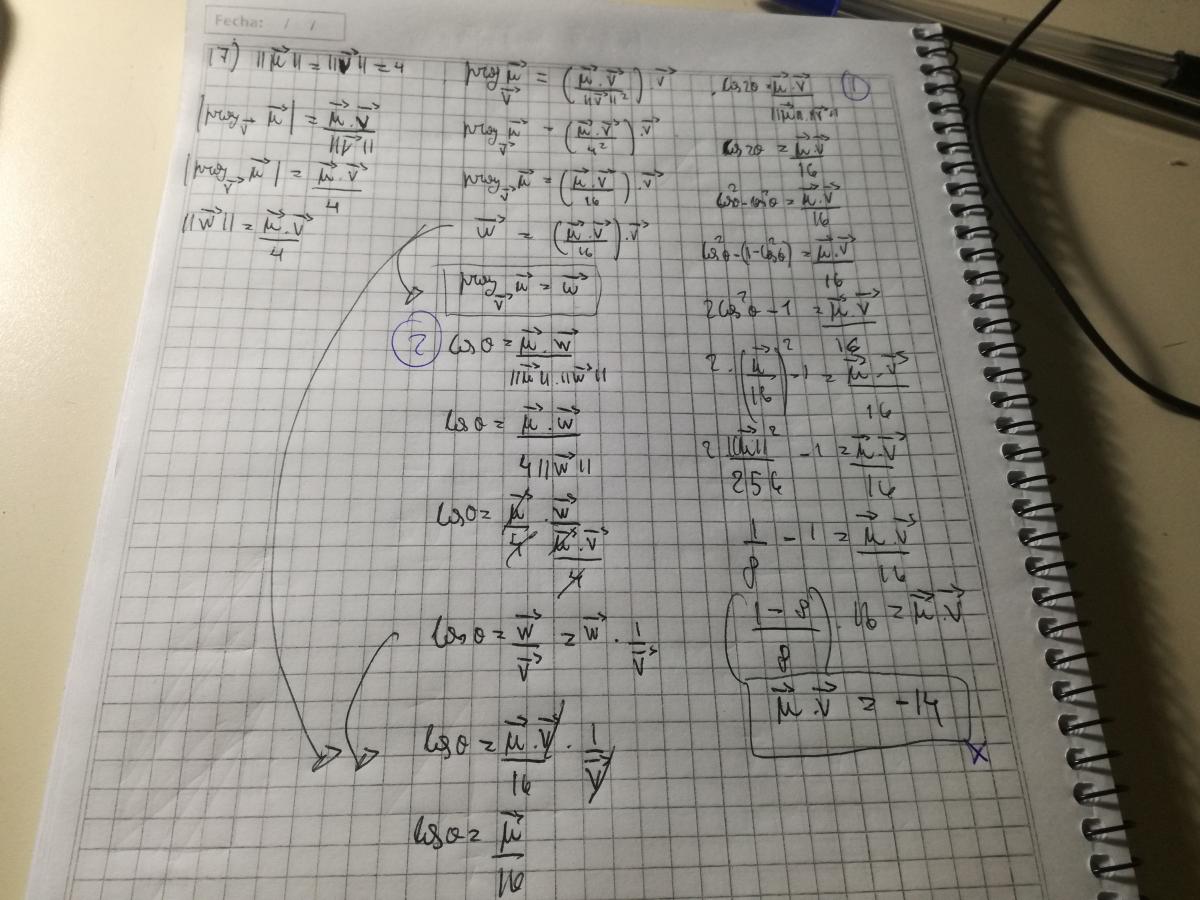 Fecha: / /
17) ||μ⃗|| = ||v⃗|| = 4
|proy_v⃗ μ⃗| = μ⃗·v⃗ / ||v⃗||
|proy_v⃗ μ⃗| = μ⃗·v⃗ / 4
||w⃗|| = μ⃗·v⃗ / 4
proy_v⃗ μ⃗ = (μ⃗·v⃗ / ||v⃗||²)·v⃗
proy_v⃗ μ⃗ = (μ⃗·v⃗ / 4²)·v⃗
proy_v⃗ μ⃗ = (μ⃗·v⃗ / 16)·v⃗
w⃗ = (μ⃗·v⃗ / 16)·v⃗
proy_v⃗ μ⃗ = w⃗
2
Cosθ = μ⃗·w⃗ / ||μ⃗||·||w⃗||
Cosθ = μ⃗·w⃗ / 4||w⃗||
Cosθ = μ⃗/4 · w⃗ / (μ⃗·v⃗ / 4)
Cosθ = w⃗ / v⃗ = w⃗ · 1 / v⃗
Cosθ = μ⃗·v⃗ / 16 · 1 / v⃗
Cosθ = μ⃗ / 16
1
Cos2θ = μ⃗·v⃗ / ||μ⃗||·||v⃗||
Cos2θ = μ⃗·v⃗ / 16
Cos²θ - sen²θ = μ⃗·v⃗ / 16
Cos²θ - (1 - Cos²θ) = μ⃗·v⃗ / 16
2Cos²θ - 1 = μ⃗·v⃗ / 16
2·(μ⃗ / 16)² - 1 = μ⃗·v⃗ / 16
2 ||μ⃗||² / 256 - 1 = μ⃗·v⃗ / 16
1/8 - 1 = μ⃗·v⃗ / 16
(1 - 8 / 8)·16 = μ⃗·v⃗
μ⃗·v⃗ = -14